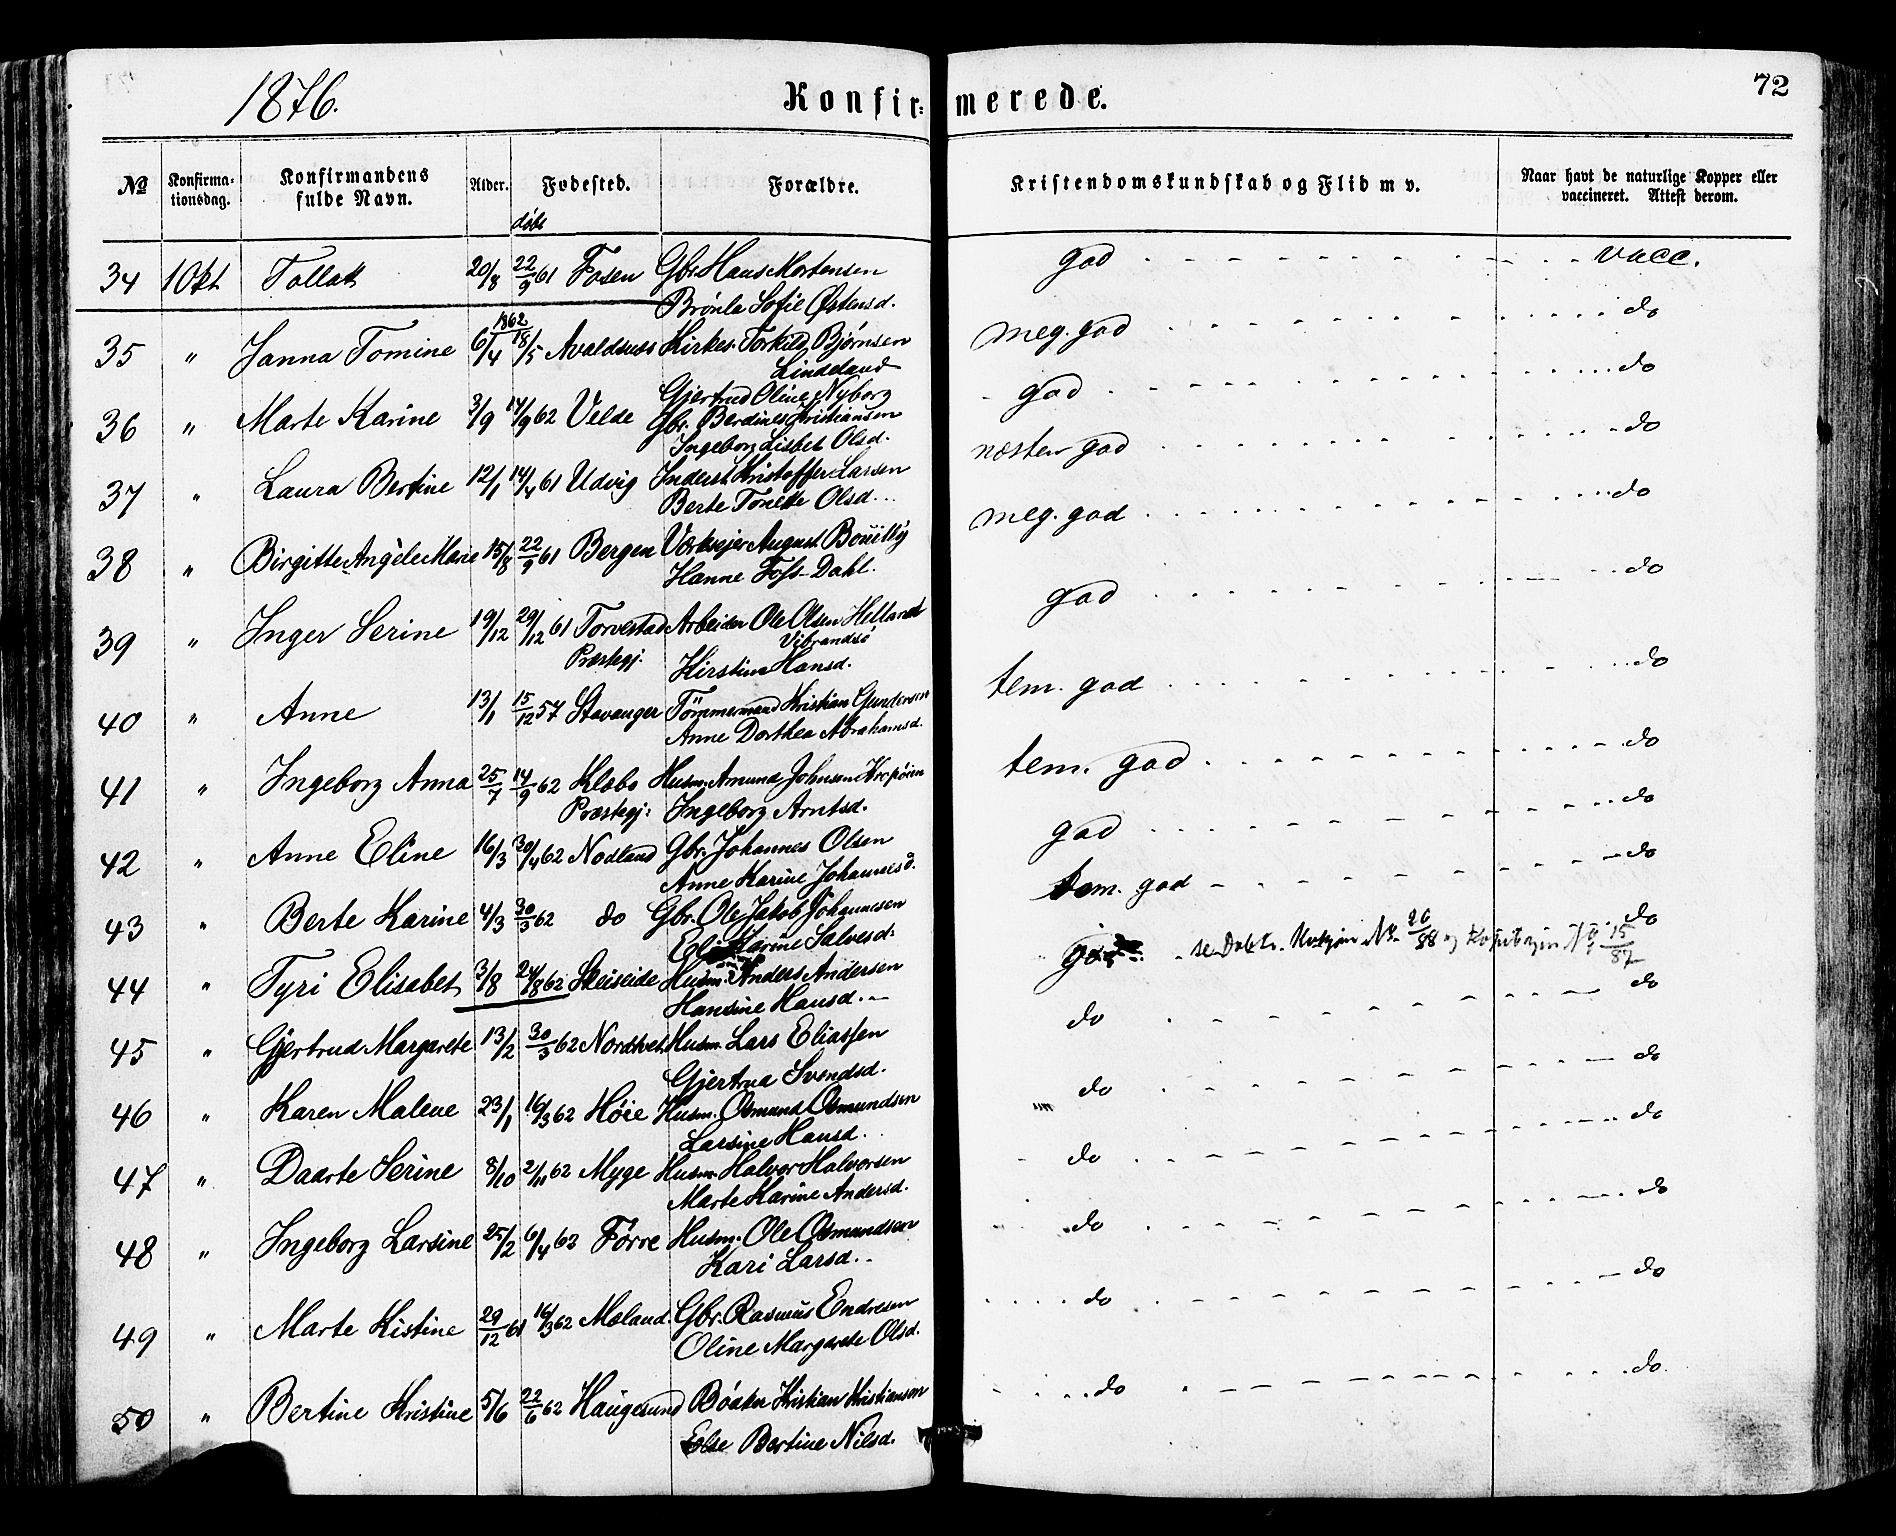 1876.
Konfir= merede.
72
№ Konfirma=tionsdag. Konfirmandens fulde Navn. Alder. Fødested. Forældre. Kristendomskundskab og Flid m v. Naar havt de naturlige Kopper eller vaccineret. Attest derom.
døbt
34 1 Okt Tollak 20/8 22/9 61 Fosen Gbr. Hans Mortensen god vacc.
Brønla Sofie Østensd.
1862
35 " Janna Tomine 6/4 18/5 Avaldsnes Kirkes. Torkild Bjørnsen meg. god do
Lindeland
Gjertrud Oline Nyborg
36 " Marte Karine 3/9 14/9 62 Velde Gbr. Berdines Kristiansen god do
Ingeborg Lisbet Olsd.
37 " Laura Bertine 12/1 14/4 61 Udvig Inderst Kristoffer Larsen næsten god do
Berte Tonette Olsd.
38 " Birgitte Angele Marie 15/8 22/9 61 Bergen Værkejer August Bouilly meg. god do
Hanne Foss-Dahl.
39 " Inger Serine 19/12 29/12 61 Torvestad Arbeider Ole Olsen Helland god do
Præstegj. Vibrandsø
Kirstine Hansd.
40 " Anne 13/1 15/12 57 Stavanger Tömmermand Kristian Gundersen tem. god do
Anne Dorthea Abrahamsd.
41 " Ingeborg Anna 25/7 14/9 62 Klæbo Husm. Amund Johnsen tem. god do
Præstegj: Ingeborg Arntsd.
42 " Anne Eline 16/3 30/4 62 Nodland Gbr. Johannes Olsen god do
Anne Karine Johannesd.
43 " Berte Karine 4/3 30/3 62 do Gbr. Ole Jakob Johannesen tem. god do
Karine Salvesd.
44 " Tyri Elisabet 3/8 24/8 62 Skeiseide Husm. Anders Andersen god se Dobte. No. 26/88 og No 15/87 do
Hansine Hansd.
45 " Gjertrud Margarete 13/2 30/3 62 Nordtvet Husm. Lars Eliassen do do
Gjertrua Svendsd.
46 " Karen Malene 23/1 16/3 62 Høie Husm. Osmund Osmundsen do do
Larsine Hansd.
47 " Daarte Serine 8/10 2/11 62 Myge Husm. Halvor Halvorsen do do
Marte Karine Andersd.
48 " Ingeborg Larsine 25/2 6/4 62 Førre Husm. Ole Osmundsen do do
Kari Larsd.
49 " Marte Kistine 29/12 61 16/3 62 Mæland. Gbr. Rasmus Endresen do do
Oline Margarete Olsd.
50 " Bertine Kristine 5/6 22/6 62 Haugesund Bødker Kristian Kristiansen do do.
Else Bertine Nilsd.